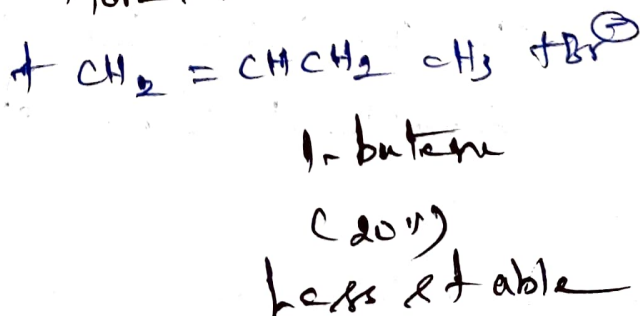 + CH₂ = CHCH₂ CH₃ + Br⊖
1-butene
(20%)
Less stable